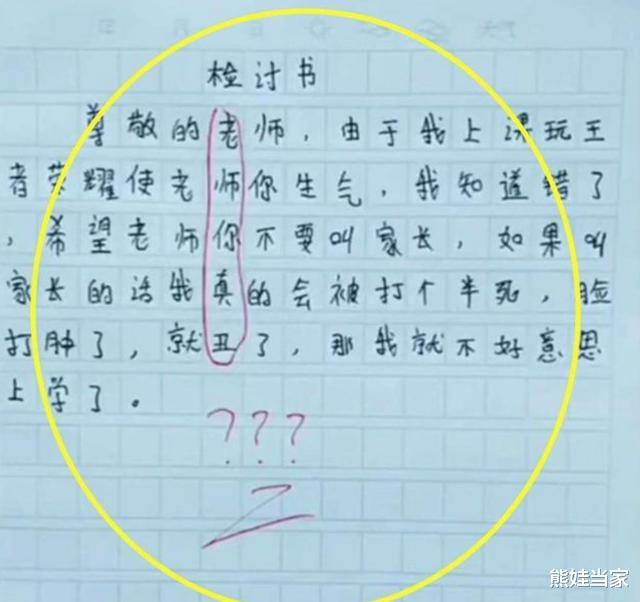 检讨书
尊敬的老师，由于我上课玩王
者荣耀使老师你生气，我知道错了
，希望老师你不要叫家长，如果叫
家长的话我真的会被打个半死，脸
打肿了，就丑了，那我就不好意思
上学了。
???
熊娃当家